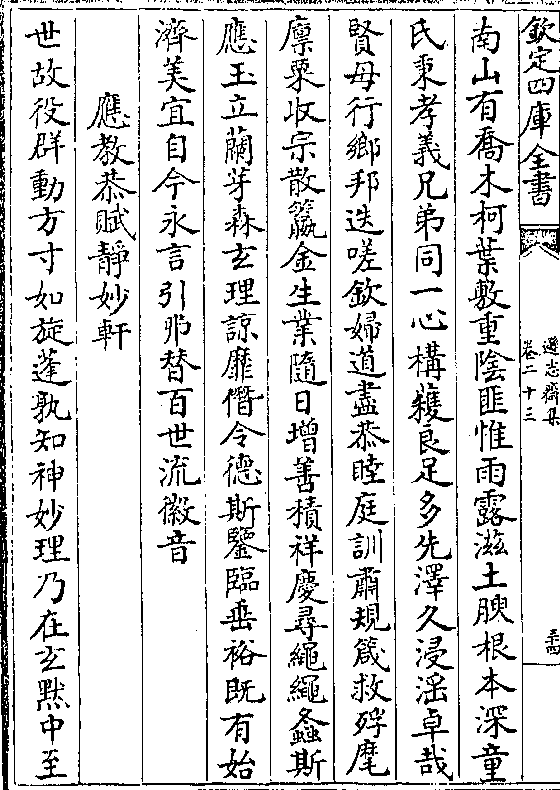 欽定四庫全書
遜志齋集
卷二十三
三十四
南山有喬木柯葉敷重陰匪惟雨露滋土腴根本深童
氏秉孝義兄弟同一心構穫良足多先澤久浸淫卓哉
賢母行鄉邦迭嗟欽婦道盡恭睦庭訓肅規箴救殍麾
廪粟收宗散籯金生業隨日增善積祥慶尋繩繩螽斯
應玉立蘭芽森玄理諒靡僭令德斯鑒臨垂裕既有始
濟美宜自今永言引弗替百世流徽音
應教恭賦靜妙軒
世故役群動方寸如旋蓬孰知神妙理乃在玄默中至